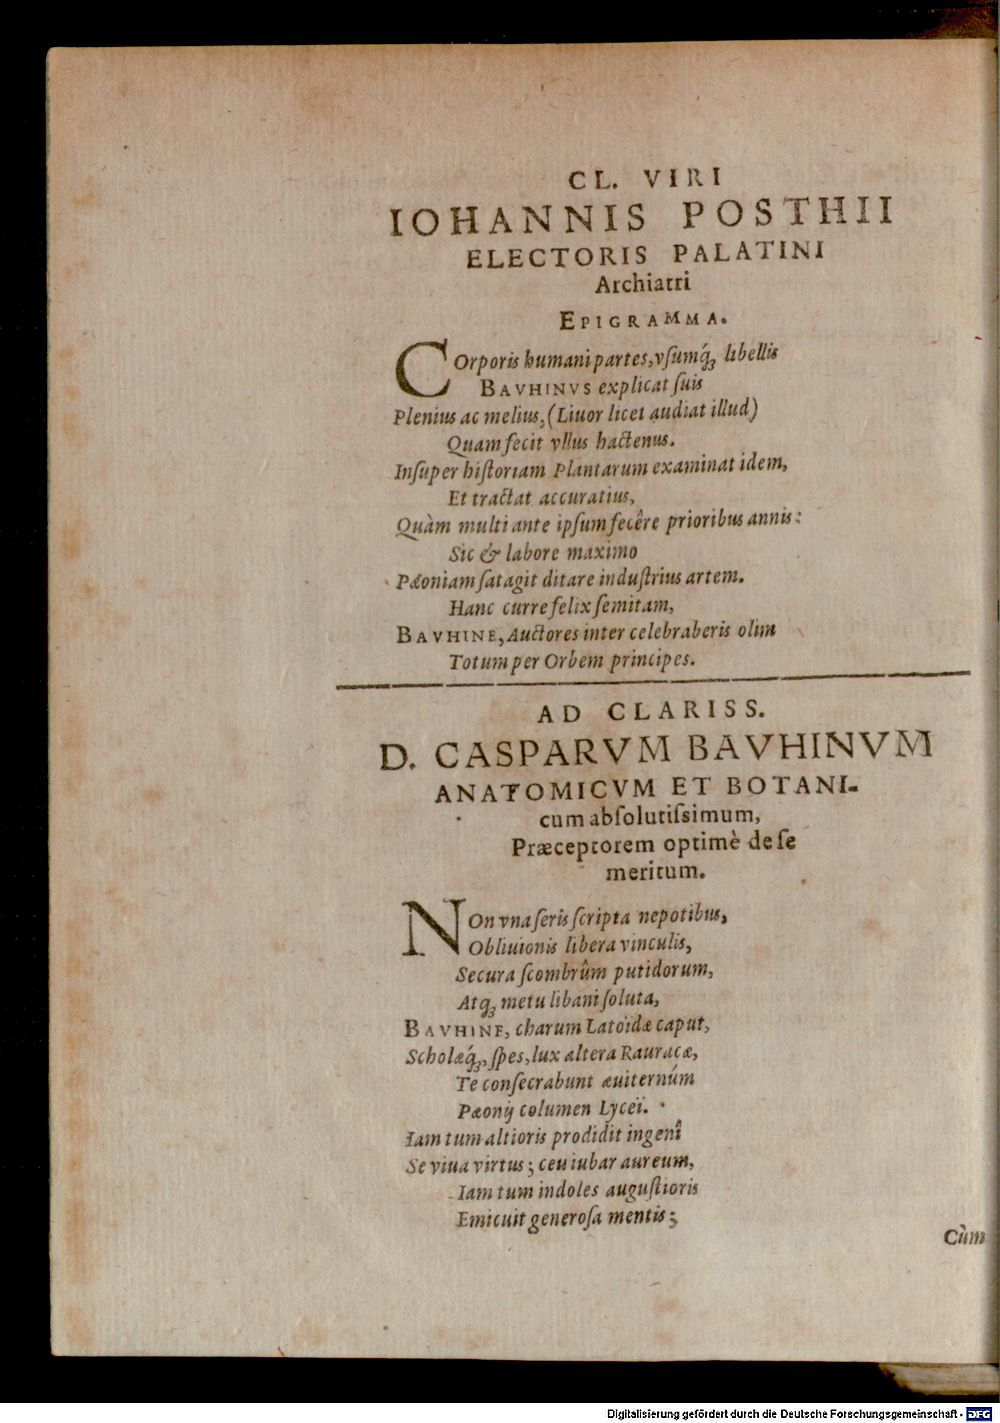 CL. VIRI
IOHANNIS POSTHII
ELECTORIS PALATINI
Archiatri
EPIGRAMMA.
COrporis humani partes, vſumq́ꝫ libellis
BAVHINVS explicat ſuis
Plenius ac melius, (Liuor licet audiat illud)
Quam fecit vllus hactenus.
Inſuper hiſtoriam Plantarum examinat idem,
Et tractat accuratius,
Quàm multi ante ipſum fecêre prioribus annis:
Sic & labore maximo
Pæoniam ſatagit ditare induſtrius artem.
Hanc curre felix ſemitam,
BAVHINE, Auctores inter celebraberis olim
Totum per Orbem principes.
AD CLARISS.
D. CASPARVM BAVHINVM
ANATOMICVM ET BOTANI-
cum abſolutiſsimum,
Præceptorem optimè de ſe
meritum.
NOn vna ſeris ſcripta nepotibus,
Obliuionis libera vinculis,
Secura ſcombrûm putidorum,
Atqꝫ metu libani ſoluta,
BAVHINE, charum Latoidæ caput,
Scholæq́ꝫ, ſpes, lux altera Rauracæ,
Te conſecrabunt æuiternúm
Pæonij columen Lycei.
Iam tum altioris prodidit ingenî
Se viua virtus; ceu iubar aureum,
Iam tum indoles auguſtioris
Emicuit generoſa mentis;
Cùm
Digitalisierung gefördert durch die Deutsche Forschungsgemeinschaft - DFG